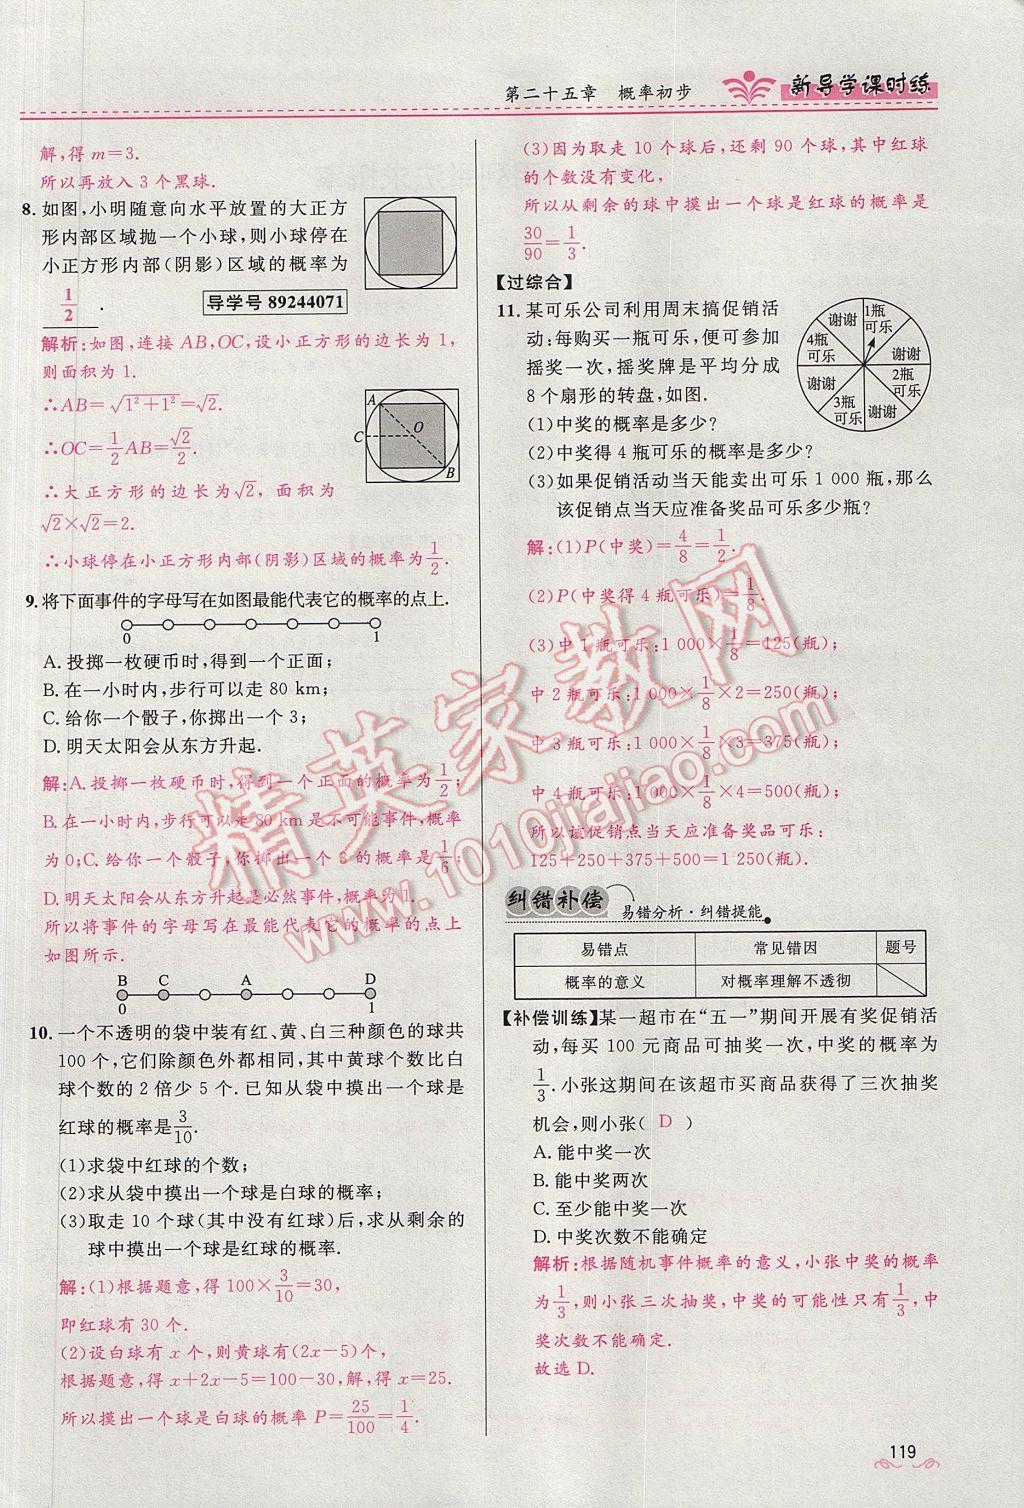 第二十五章　概率初步
新导学课时练
解,得m=3.
所以再放入3个黑球.
8. 如图,小明随意向水平放置的大正方
形内部区域抛一个小球,则小球停在
小正方形内部(阴影)区域的概率为
1/2 .
导学号 89244071
解析:如图,连接AB,OC,设小正方形的边长为1,
则面积为1.
∴AB=√(1²+1²)=√2.
∴OC=1/2AB=√2/2.
A
O
C
B
∴大正方形的边长为√2,面积为
√2×√2=2.
∴小球停在小正方形内部(阴影)区域的概率为1/2.
9. 将下面事件的字母写在如图最能代表它的概率的点上.
0 1
A. 投掷一枚硬币时,得到一个正面;
B. 在一小时内,步行可以走80 km;
C. 给你一个骰子,你掷出一个3;
D. 明天太阳会从东方升起.
解:A. 投掷一枚硬币时,得到一个正面的概率为1/2;
B. 在一小时内,步行可以走80 km是不可能事件,概率
为0;C. 给你一个骰子,你掷出一个3的概率是1/6;
D. 明天太阳会从东方升起是必然事件,概率为1.
所以将事件的字母写在最能代表它的概率的点上
如图所示.
B C A D
0 1
10. 一个不透明的袋中装有红、黄、白三种颜色的球共
100个,它们除颜色外都相同,其中黄球个数比白
球个数的2倍少5个. 已知从袋中摸出一个球是
红球的概率是3/10.
(1)求袋中红球的个数;
(2)求从袋中摸出一个球是白球的概率;
(3)取走10个球(其中没有红球)后,求从剩余的
球中摸出一个球是红球的概率.
解:(1)根据题意,得100×3/10=30,
即红球有30个.
(2)设白球有x个,则黄球有(2x-5)个,
根据题意,得x+2x-5=100-30,解,得x=25.
所以摸出一个球是白球的概率P=25/100=1/4.
(3)因为取走10个球后,还剩90个球,其中红球
的个数没有变化,
所以从剩余的球中摸出一个球是红球的概率是
30/90=1/3.
【过综合】
11. 某可乐公司利用周末搞促销活
动:每购买一瓶可乐,便可参加
摇奖一次,摇奖牌是平均分成
8个扇形的转盘,如图.
谢谢
1瓶可乐
谢谢
2瓶可乐
谢谢
3瓶可乐
谢谢
4瓶可乐
(1)中奖的概率是多少?
(2)中奖得4瓶可乐的概率是多少?
(3)如果促销活动当天能卖出可乐1 000瓶,那么
该促销点当天应准备奖品可乐多少瓶?
解:(1)P(中奖)=4/8=1/2.
(2)P(中奖得4瓶可乐)=1/8.
(3)中1瓶可乐:1 000×1/8=125(瓶);
中2瓶可乐:1 000×1/8×2=250(瓶);
中3瓶可乐:1 000×1/8×3=375(瓶);
中4瓶可乐:1 000×1/8×4=500(瓶);
所以该促销点当天应准备奖品可乐:
125+250+375+500=1 250(瓶).
纠错补偿 易错分析·纠错提能
易错点 常见错因 题号
概率的意义 对概率理解不透彻
【补偿训练】某一超市在“五一”期间开展有奖促销活
动,每买100元商品可抽奖一次,中奖的概率为
1/3. 小张这期间在该超市买商品获得了三次抽奖
机会,则小张( D )
A. 能中奖一次
B. 能中奖两次
C. 至少能中奖一次
D. 中奖次数不能确定
解析:根据随机事件概率的意义,小张中奖的概率
为1/3,则小张三次抽奖,中奖的可能性只有1/3,中
奖次数不能确定.
故选D.
119
精英家教网
www.1010jiajiao.com